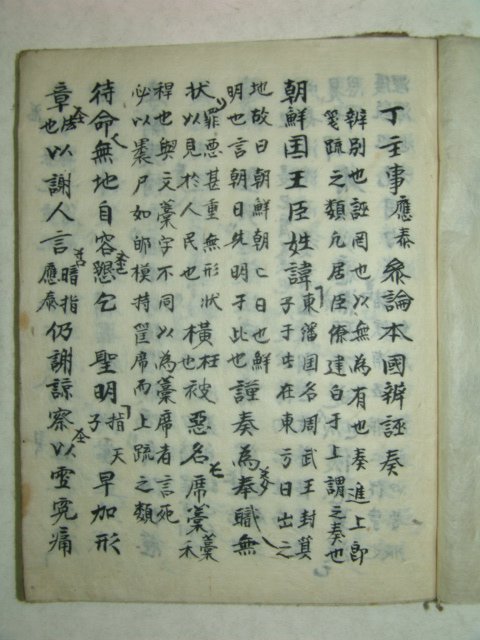 丁主事應泰叅論本國辨誣奏
辨別也誣罔也以無為有也奏進上卽
箋疏之類凡居臣僚建白于上謂之奏也
朝鮮国王臣姓諱
東藩国名周武王封箕
子于此在東方日出之
地故曰朝鮮朝亡日也鮮
明也言朝日先明于此也
謹奏為奉職無
狀
罪悪甚重無形状
以見於人民也
橫
枉
也
被惡名席藁
藁禾
稈也與文藁字不同以為藁席者言死
必以裹尸如郎模持筐席而上疏之類
待命無地自容懇乞 聖明
指天
子
早加形
章
法
也
以謝人言
暗指
應泰
仍謝諒察以雪寃痛